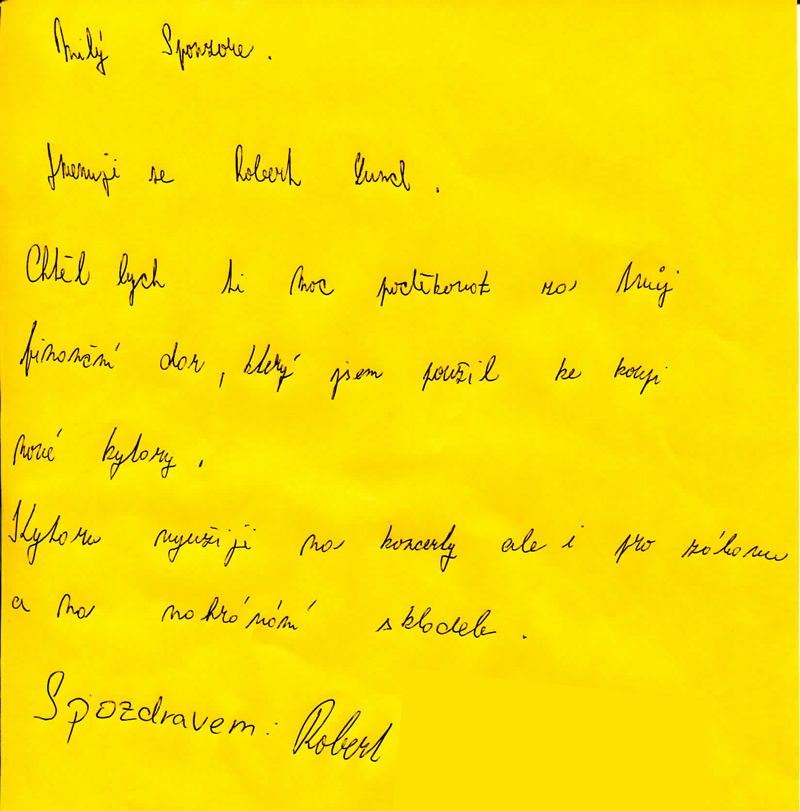 Milý Sponzore.
Jmenuji se Robert
Chtěl bych ti moc poděkovat za tvůj
finanční dar, který jsem použil ke koupi
nové kytary.
Kytaru využiji na koncerty ale i pro zábavu
a na nahrávání skladeb.
S pozdravem: Robert